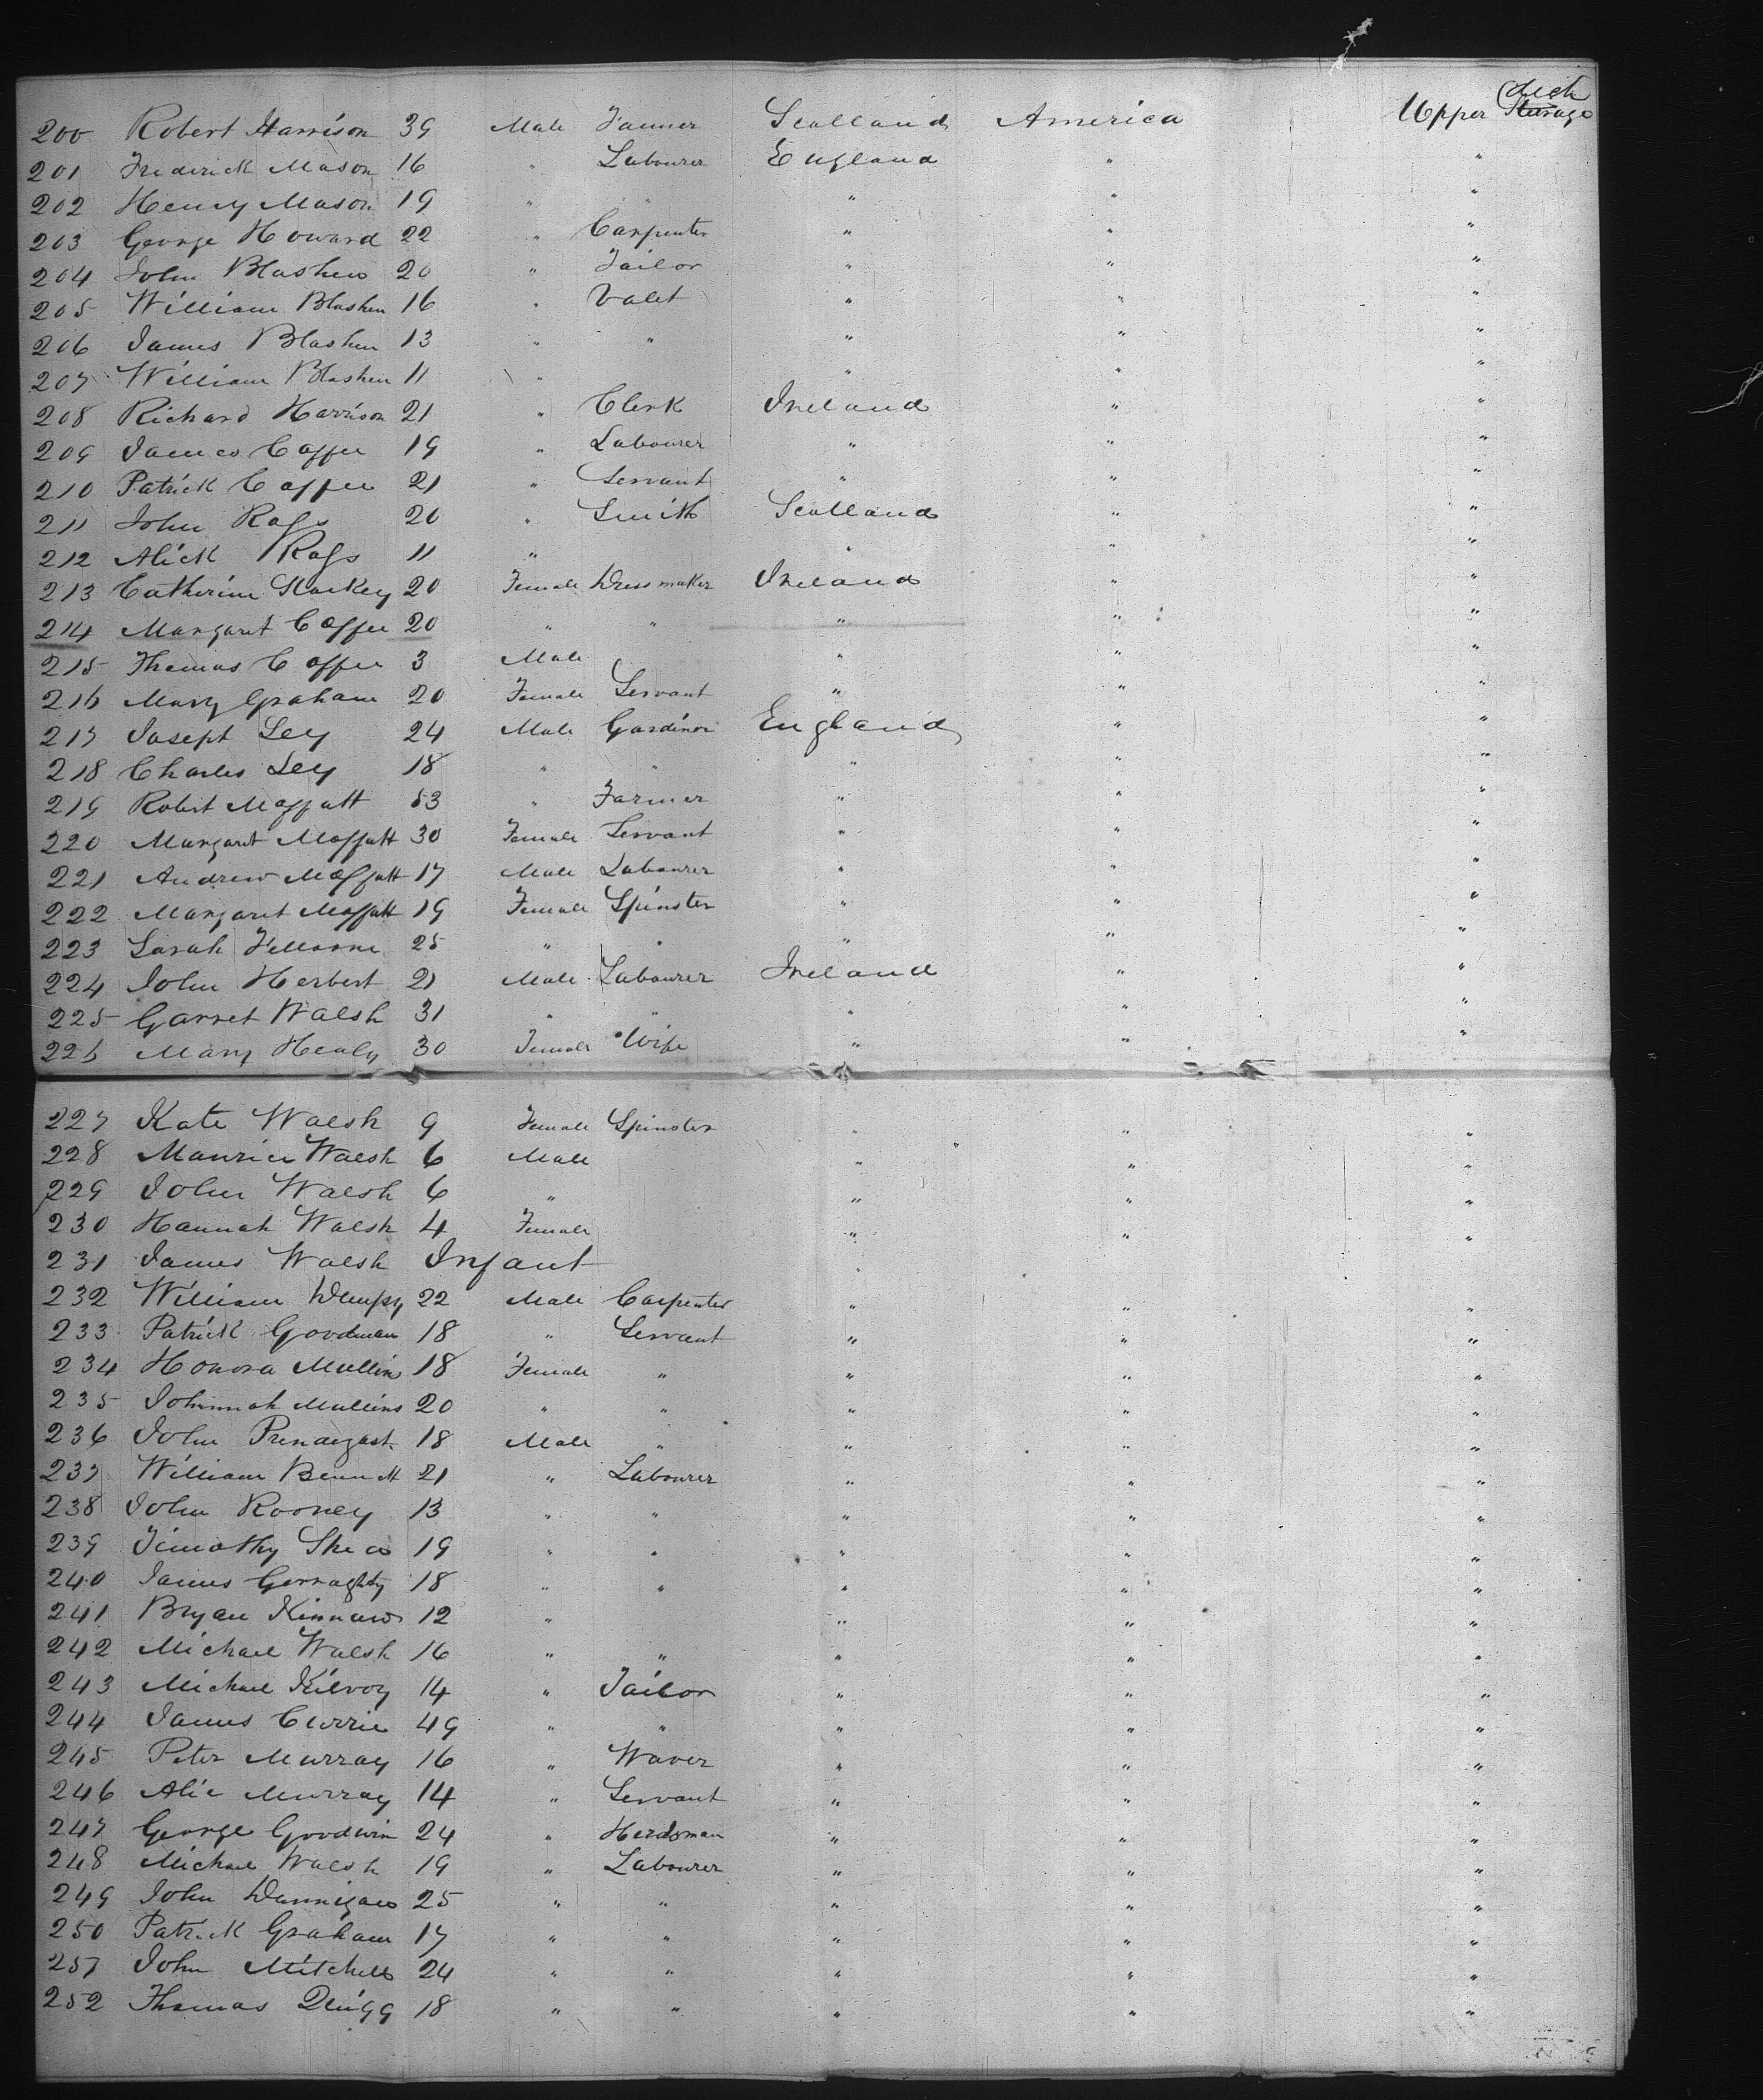 200 Robert Harrison 39 Male Farmer Scotland America Upper deck Steerage
201 Frederick Mason 16 " Labourer England " "
202 Henry Mason 19 " " " " "
203 George Howard 22 " Carpenter " " "
204 John Blashen 20 " Tailor " " "
205 William Blashen 16 " Valet " " "
206 James Blashen 13 " " " " "
207 William Blashen 11 " " " "
208 Richard Harrison 21 " Clerk Ireland " "
209 James Caffee 19 " Labourer " " "
210 Patrick Caffee 21 " Servant " " "
211 John Ross 20 " Smith Scotland " "
212 Alick Ross 11 " " " "
213 Catherine 20 Female Dressmaker Ireland " "
214 Margaret Caffee 20 " " " " "
215 Thomas Caffee 3 Male " " "
216 Mary Graham 20 Female Servant " " "
217 Joseph Ley 24 Male Gardinor England " "
218 Charles Ley 18 " " " " "
219 Robert Moffatt 53 " Farmer " " "
220 Margaret Moffatt 30 Female Servant " " "
221 Andrew Moffatt 17 Male Labourer " " "
222 Margaret Moffatt 19 Female Spinster " " "
223 Sarah 25 " " " " "
224 John Herbert 21 Male Labourer Ireland " "
225 Garret Walsh 31 " " " " "
226 Mary Healy 30 Female Wife " " "
227 Kate Walsh 9 Female Spinster " " "
228 Maurice Walsh 6 Male " " "
229 John Walsh 6 " " " "
230 Hannah Walsh 4 Female " " "
231 James Walsh Infant " "
232 William Dempsy 22 Male Carpenter " " "
233 Patrick Goodman 18 " Servant " " "
234 Honora Mullins 18 Female " " " "
235 Johnnah Mullins 20 " " " " "
236 John Prendergast 18 Male " " " "
237 William Bennett 21 " Labourer " " "
238 John Rooney 13 " " " " "
239 Timothy Shea 19 " " " " "
240 James Gerraghty 18 " " " " "
241 Bryan 12 " " " "
242 Michael Walsh 16 " " " " "
243 Michael Kilroy 14 " Tailor " " "
244 James Currie 49 " " " " "
245 Peter Murray 16 " Waver " " "
246 Alic Murray 14 " Servant " " "
247 George Goodwin 24 " Herdsman " " "
248 Michael Walsh 19 " Labourer " " "
249 John Dannigan 25 " " " " "
250 Patrick Graham 17 " " " " "
251 John Mitchell 24 " " " " "
252 Thomas Quigg 18 " " " " "